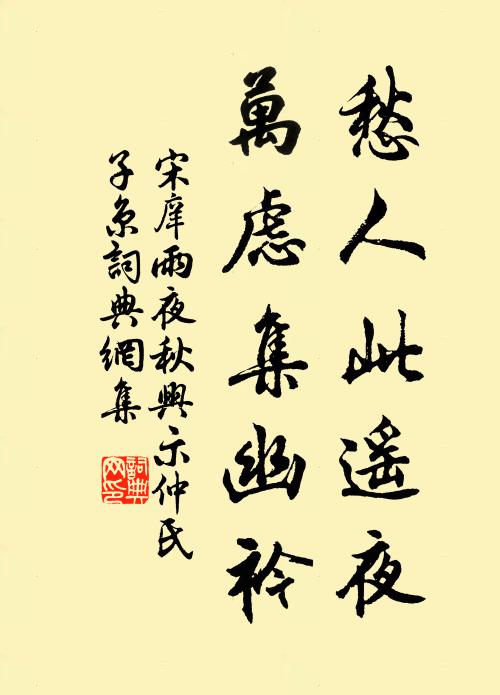 愁人此遥夜
萬慮集幽衿
宋庠雨夜秋興示仲氏
子京詞典網集
詞典
网印